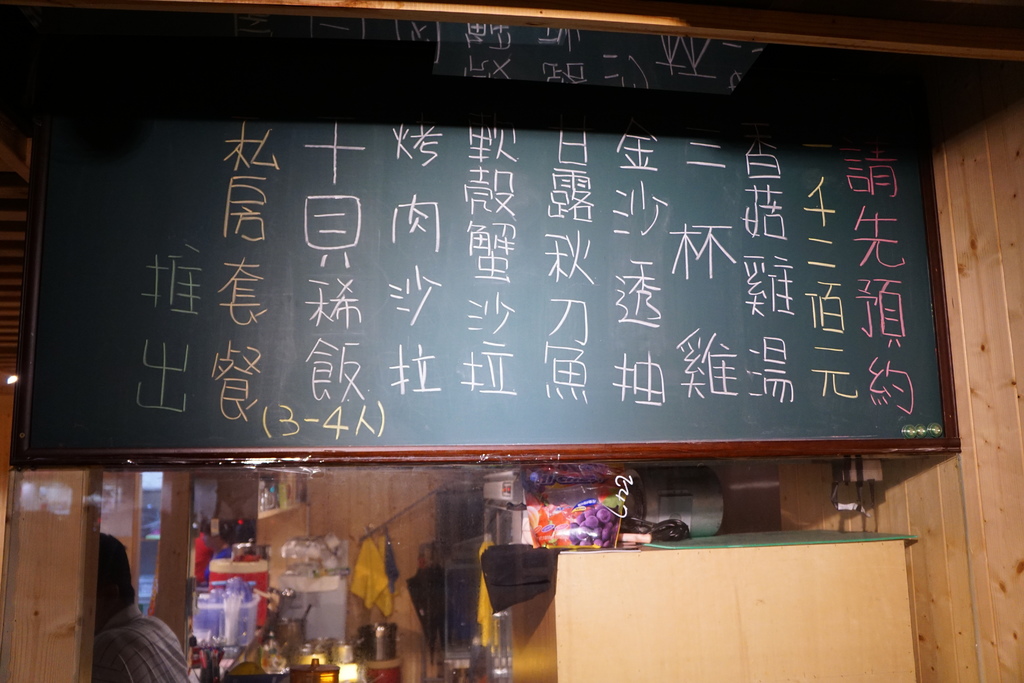 推出
私房套餐
(3-4人)
干貝稀飯
烤肉沙拉
軟殼蟹沙拉
甘露秋刀魚
金沙透抽
三杯雞
香菇雞湯
一千二佰元
請先預約